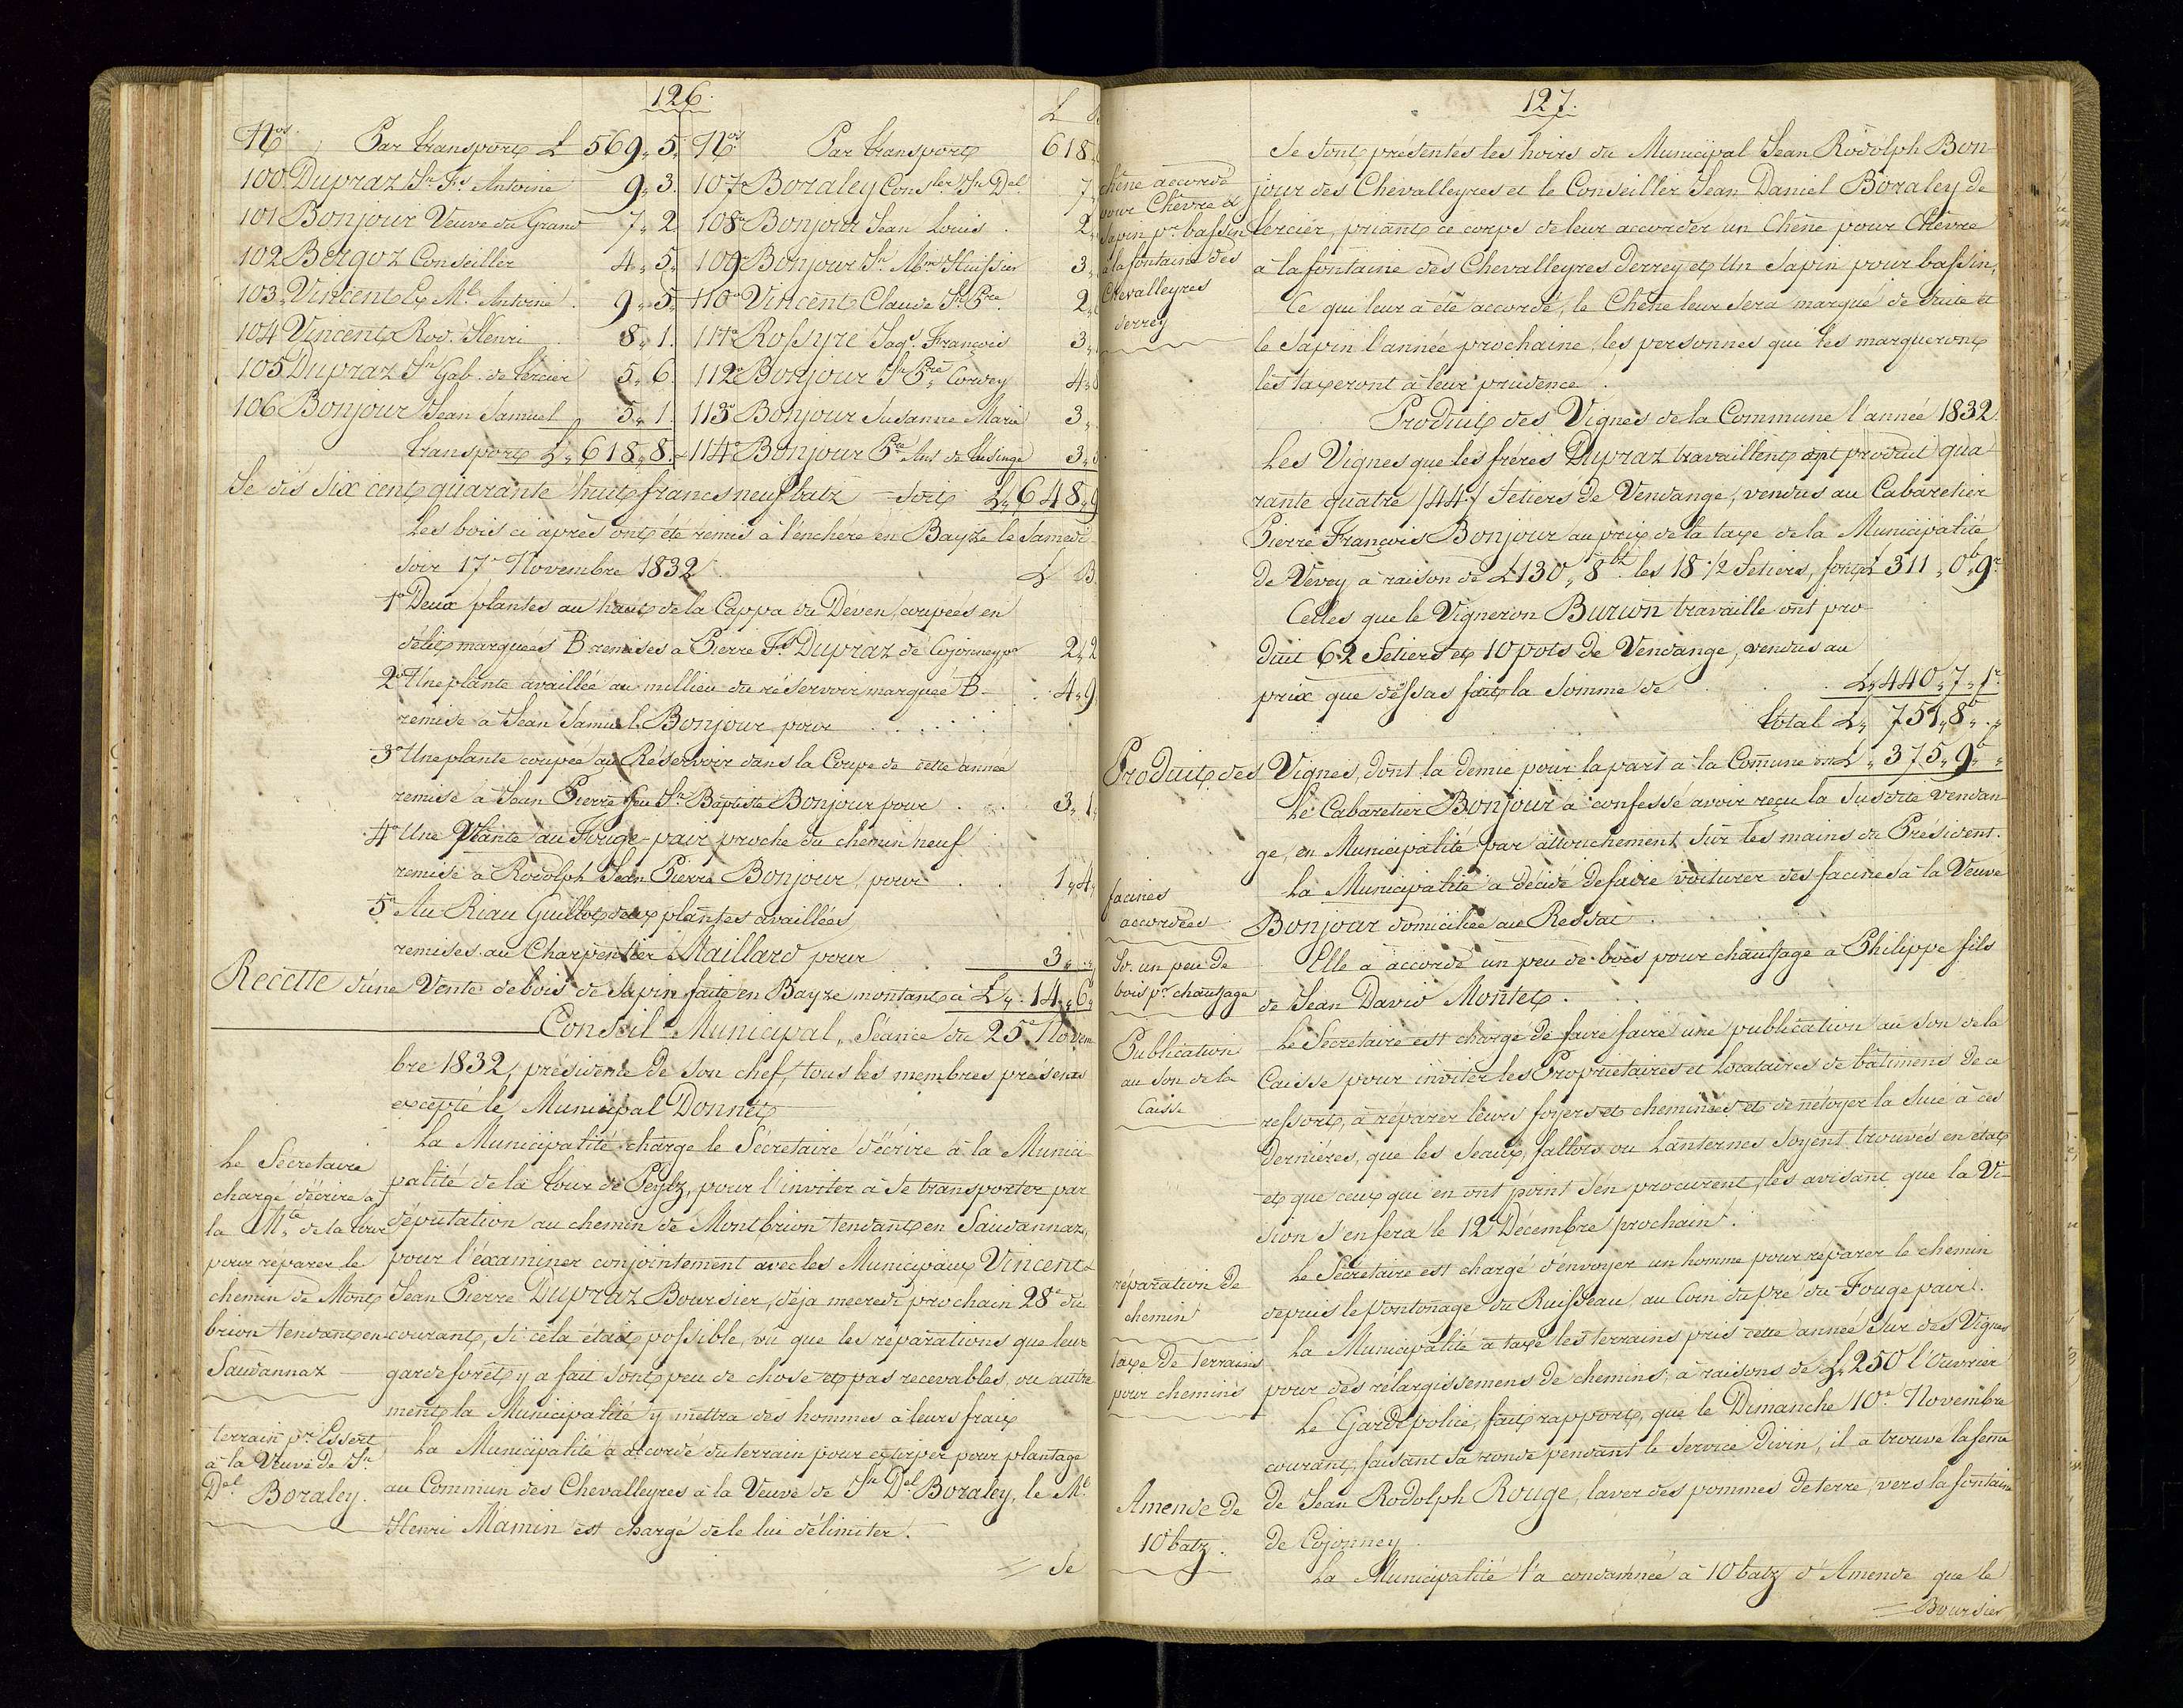 126.
L
Nos. Par transport L 569„ 5.
100. Dupraz Jn. Fs. Antoine 9„ 3.
101 Bonjour Veuve du Grand 7„ 2.
102 Bergoz Conseiller 4„ 5.
103„ Vincent Ml. Antoine 9„ 5.
104 Vincent Rod. Henri 8„ 1.
105 Dupraz Jn. Gab. de tercier 5„ 6.
106 Bonjour Jean Samuel 5„ 1.
transport L„ 618„ 8.
Nos. Par transport 618
107„ Boraley Conser. Jn. Del. 7
108„ Bonjour Jean Louis 2
109„ Bonjour Huissier 3
110„ Vincent Claude Jn. Pre. 2
111„ Rossyre Jaqs. François 3
112„ Bonjour Jn. Pre. Corvey 4
113„ Bonjour Susanne Marie 3
114„ Bonjour Pre. 3
Je dis Six cent quarante huit francs neuf batz = soit L„ 648„ 9
Les bois ci après ont été remis à l'enchère en Bayze le Samedi
soir 17e Novembre 1832. L B.
1o Deux plantes au haut de la Cappa du Deven, coupées en
délit marquées B remises à Pierre Fs. Dupraz de Cojonney pr. 2„ 2
2o Une plante availlée au millieu du réservoir marquée B. 4„ 9
remise à Jean Samuel Bonjour pour
3o Une plante coupée au Réservoir dans la Coupe de cette année
remise à Jean Pierre feu Jn. Baptiste Bonjour pour 3„ 1
4o Une Plante au Fouge-pair proche du chemin neuf
remise à Rodolph Jean Pierre Bonjour, pour 1„ 4
5o Au Riau Guillot deux plantes availlées
remises au Charpentier Maillard pour 3„ „
Recette d'une Vente de bois de sapin faite en Bayze montant à L„ 14„ 6
Conseil Municipal, Séance du 25e. Novem
bre 1832, présidence de son chef, tous les membres présents
excepté le Municipal Donnet
Le Secretaire
chargé d'écrire à
la Mté. de la tour
pour réparer le
chemin de Mont
brion tendant en
Saudannaz
La Municipalité charge le Sécretaire d'écrire à la Munici-
palité de la tour de Peylz, pour l'inviter à se transporter par
députation au chemin de Montbrion tendant en Saudannaz,
pour l'éxaminer conjointement avec les Municipaux Vincent &
Jean Pierre Dupraz Boursier, déja mecredi prochain 28e. du
courant, si cela était possible, vû que les réparations que leur
garde forêt y a fait sont peu de chose et pas recevables, ou autre-
ment la Municipalité y mettra des hommes à leurs fraix
terrain pr. Essert
à la Veuve de Jn.
Del Boraley.
La Municipalité a accordé du terrain pour extirper pour plantage
au Commun des Chevalleyres à la Veuve de Jn. Del. Boraley, le Ml.
Henri Mamin est chargé de le lui délimiter.
= Se
127.
chêne accordé
pour Chèvre &
Sapin pr. bassin
à la fontaine des
Chevalleyres
derrey
Se sont présentés les hoirs du Municipal Jean Rodolph Bon-
jour des Chevalleyres et le Conseiller Jean Daniel Boraley de
tercier, priant ce corps de leur accorder un Chêne pour Chèvre
à la fontaine des Chevalleyres derrey et Un Sapin pour bassin,
Ce qui leur a été accordé, le Chêne leur sera marqué de suite et
le Sapin l'année prochaine, les personnes qui les marqueront
les taxeront à leur prudence.
Produit des Vignes de la Commune l'année 1832.
Les Vignes que les frères Dupraz travaillent ont produit qua-
rante quatre /44/ Setiers de Vendange, vendus au Cabaretier
Pierre François Bonjour au prix de la taxe de la Municipalité
de Vevey à raison de L 130„ 8 bz. les 18 1/2 Setiers, font L 311„ 0b„ 9r.
Celles que le Vigneron Burion travaille ont pro-
duit 62 Setiers et 10 pots de Vendange, vendus au
prix que dessus fait la somme de L„ 440„ 7„ 1r.
total L„ 751„ 8b„ „
Produit des Vignes, dont la demie pour la part à la Comune L„ 375„ 9b„ „
Le Cabaretier Bonjour a confessé avoir reçu la susdite Vendan-
ge, en Municipalité par attouchement sur les mains du Président.
facines
accordées
La Municipalité a décidé de faire voiturer des facines à la Veuve
Bonjour domiciliée au Ressat.
Id. un peu de
bois pr. chauffage
Elle a accordé un peu de bois pour chauffage à Philippe fils
de Jean David Montet.
Publication
au son de la
Caisse
Le Sécretaire est chargé de faire faire une publication au son de la
Caisse pour inviter les Propriétaires et Locataires de bâtimens de ce
ressort, à réparer leurs foyers et cheminées et de nétoyer la suie à ces
dernières, que les seaux, fallots ou Lanternes soyent trouvés en état
et que ceux qui en ont point s'en procurent, les avisant que la Vi-
sion s'en fera le 12e Décembre prochain.
réparation de
chemin
Le Sécretaire est chargé d'envoyer un homme pour réparer le chemin
depuis le pontonage du Ruisseau, au Coin du pré du Fouge pair.
taxe de terrains
pour chemins
La Municipalité a taxé les terrains pris cette année sur des Vignes
pour des rélargissemens de chemins, à raisons de L„ 250 l'Ouvrier
Amende de
10 batz.
Le Garde police, fait rapport, que le Dimanche 10e. Novembre
courant, faisant sa ronde pendant le service divin, il a trouvé la feme
de Jean Rodolph Rouge, laver des pommes de terre, vers la fontaine
de Cojonney.
La Municipalité l'a condamnée à 10 batz d'Amende que le
= Boursier